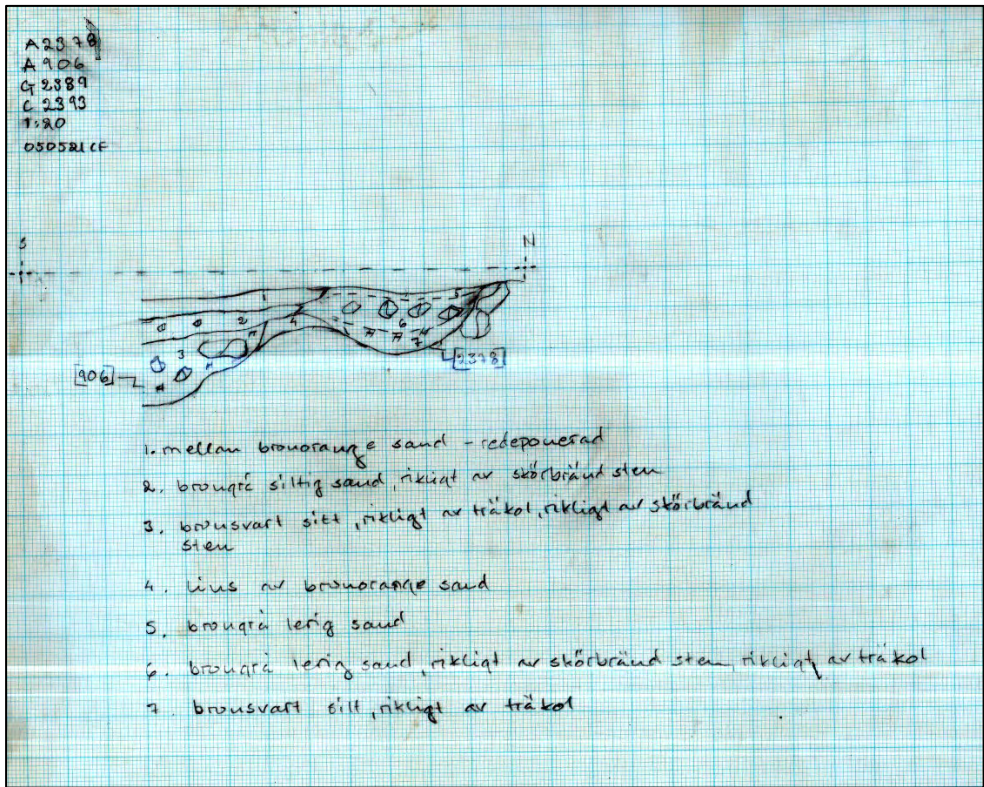 A2378
A906
G2389
C2393
1:20
050521 CF
S N
1 5
2 4 6
3 7
[906] [2378]
1. mellan brunorange sand - redeponerad
2. brungrå siltig sand, rikligt av skörbränd sten
3. brunsvart silt, rikligt av träkol, rikligt av skörbränd
sten
4. lins av brunorange sand
5. brungrå lerig sand
6. brungrå lerig sand, rikligt av skörbränd sten, rikligt av träkol
7. brunsvart silt, rikligt av träkol